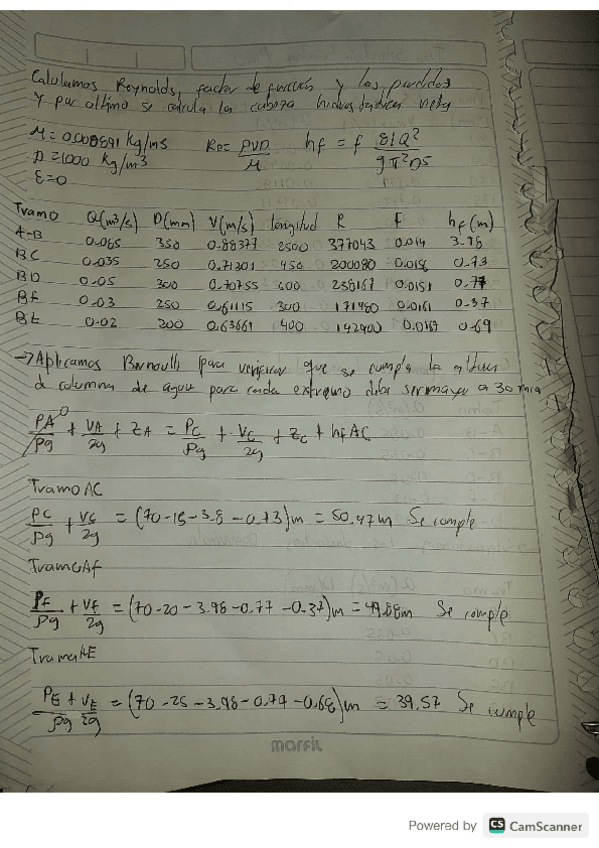 Calculamos Reynolds, factor de fricción y las perdidas
Y por ultimo se calcula la cabeza hidrostatica neta
M = 0.000891 kg/ms Re = ρVD/M hf = f 8LQ²/gπ²D⁵
D = 1000 kg/m³
ε = 0
Tramo Q(m³/s) D(mm) V(m/s) longitud R F hf(m)
A-B 0.085 350 0.88377 2500 377043 0.014 3.98
BC 0.035 250 0.71301 450 200080 0.0156 0.73
BD 0.05 300 0.70755 600 238167 0.0151 0.77
BF 0.03 250 0.61115 300 171480 0.0161 0.37
BE 0.02 200 0.63661 400 142900 0.0167 0.69
→ Aplicamos Bernoulli para verificar que se cumpla la altura
d columna de agua para cada extremo debe ser mayor a 30 mca
PA/ρg⁰ + VA/2g + ZA = PC/ρg + VC/2g + ZC + hfAC
Tramo AC
PC/ρg + VC/2g = (70-15-3.8-0.73)m = 50.47m Se cumple
Tramo AF
PF/ρg + VF/2g = (70-20-3.98-0.77-0.37)m = 44.88m Se cumple
Tramo AE
PE/ρg + VE/2g = (70-25-3.98-0.79-0.68)m = 39.57 Se cumple
marfil
Powered by CS CamScanner